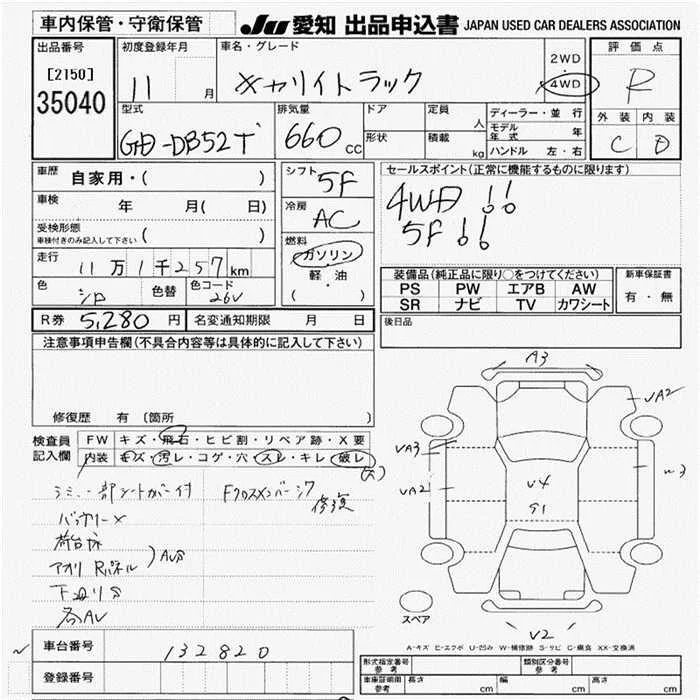 車内保管・守衛保管
JU 愛知 出品申込書 JAPAN USED CAR DEALERS ASSOCIATION
出品番号
[2150]
35040
初度登録年月
11 月
車名・グレード
キャリイトラック
2WD
4WD
評価点
R
外装 内装
C D
型式
GD-DB52T
排気量
660 CC
ドア
形状
定員 人
積載 kg
ディーラー・並行
モデル年式 年
ハンドル 左・右
車歴 自家用・( )
車検 年 月( 日)
受検形態
車検付きのみ記入して下さい ( )
走行 11万1千257km
色 シロ 色替 色コード 26V
シフト 5F
冷房 AC
燃料
ガソリン
軽・油
( )
セールスポイント(正常に機能するものに限ります)
4WD !!
5F !!
装備品(純正品に限り○をつけてください)
PS PW エアB AW
SR ナビ TV カワシート
新車保証書
有・無
R券 5,280円 名変通知期限 月 日
後日品
注意事項申告欄(不具合内容等は具体的に記入して下さい)
修復歴 有 〔箇所 〕
検査員記入欄
FW キズ・飛石・ヒビ割・リペア跡・X要
内装 キズ・汚レ・コゲ・穴・スレ・キレ・破レ
バッテリーX
荷台
アオリ Rパネル
AUS
下廻りS
各AU
修復
A3
UA2
UA3
UA2
U4
S1
U3
U2
スペア
A-キズ E-エクボ U-凹み W-補修跡 S-サビ C-腐食 XX-交換済
車台番号 132820
登録番号
形式指定番号 参考
類別区分番号 参考
車庫証明用 参考 長さ cm 幅 cm 高さ cm